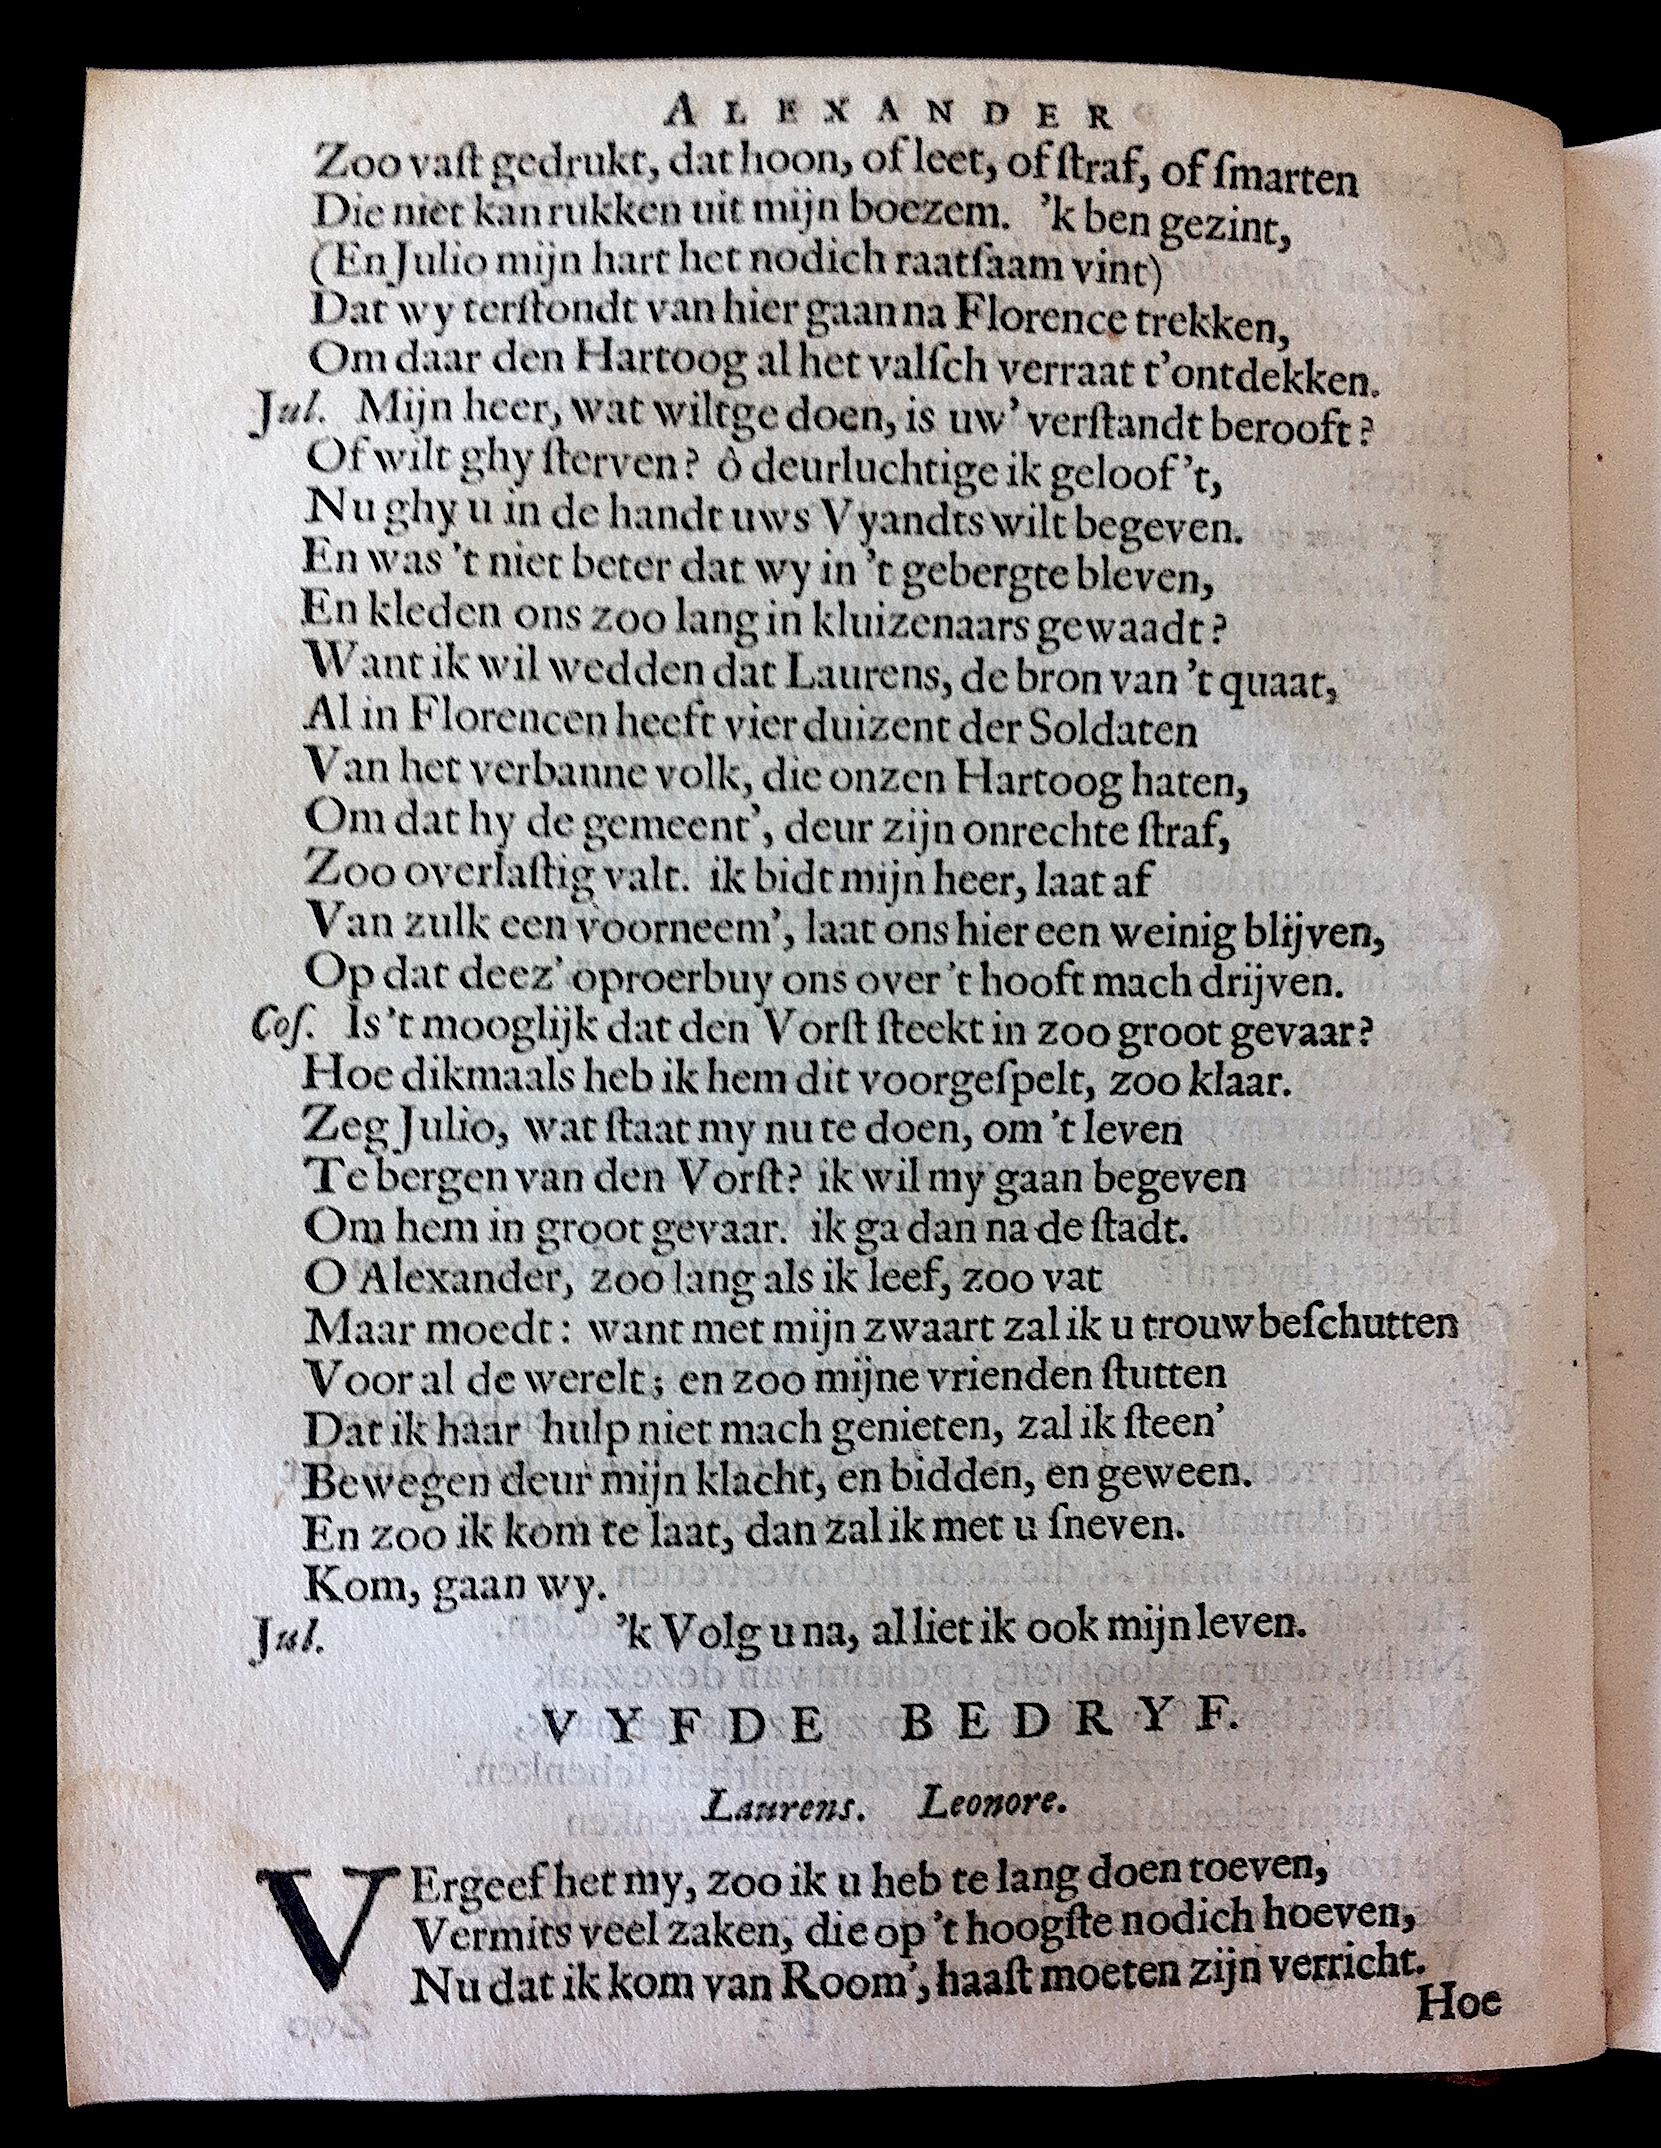 ALEXANDER
Zoo vaſt gedrukt, dat hoon, of leet, of ſtraf, of ſmarten
Die niet kan rukken uit mijn boezem. 'k ben gezint,
(En Julio mijn hart het nodich raatſaam vint)
Dat wy terſtondt van hier gaan na Florence trekken,
Om daar den Hartoog al het valſch verraat t'ontdekken.
Jul. Mijn heer, wat wiltge doen, is uw' verſtandt berooft?
Of wilt ghy ſterven? ô deurluchtige ik geloof 't,
Nu ghy u in de handt uws Vyandts wilt begeven.
En was 't niet beter dat wy in 't gebergte bleven,
En kleden ons zoo lang in kluizenaars gewaadt?
Want ik wil wedden dat Laurens, de bron van 't quaat,
Al in Florencen heeft vier duizent der Soldaten
Van het verbanne volk, die onzen Hartoog haten,
Om dat hy de gemeent', deur zijn onrechte ſtraf,
Zoo overlaſtig valt. ik bidt mijn heer, laat af
Van zulk een voorneem', laat ons hier een weinig blijven,
Op dat deez' oproerbuy ons over 't hooft mach drijven.
Coſ. Is 't mooglijk dat den Vorſt ſteekt in zoo groot gevaar?
Hoe dikmaals heb ik hem dit voorgeſpelt, zoo klaar.
Zeg Julio, wat ſtaat my nu te doen, om 't leven
Te bergen van den Vorſt? ik wil my gaan begeven
Om hem in groot gevaar. ik ga dan na de ſtadt.
O Alexander, zoo lang als ik leef, zoo vat
Maar moedt: want met mijn zwaart zal ik u trouw beſchutten
Voor al de werelt; en zoo mijne vrienden ſtutten
Dat ik haar hulp niet mach genieten, zal ik ſteen'
Bewegen deur mijn klacht, en bidden, en geween.
En zoo ik kom te laat, dan zal ik met u ſneven.
Kom, gaan wy.
Jul. 'k Volg u na, al liet ik ook mijn leven.
VYFDE BEDRYF.
Laurens. Leonore.
VErgeef het my, zoo ik u heb te lang doen toeven,
Vermits veel zaken, die op 't hoogſte nodich hoeven,
Nu dat ik kom van Room', haaſt moeten zijn verricht.
Hoe